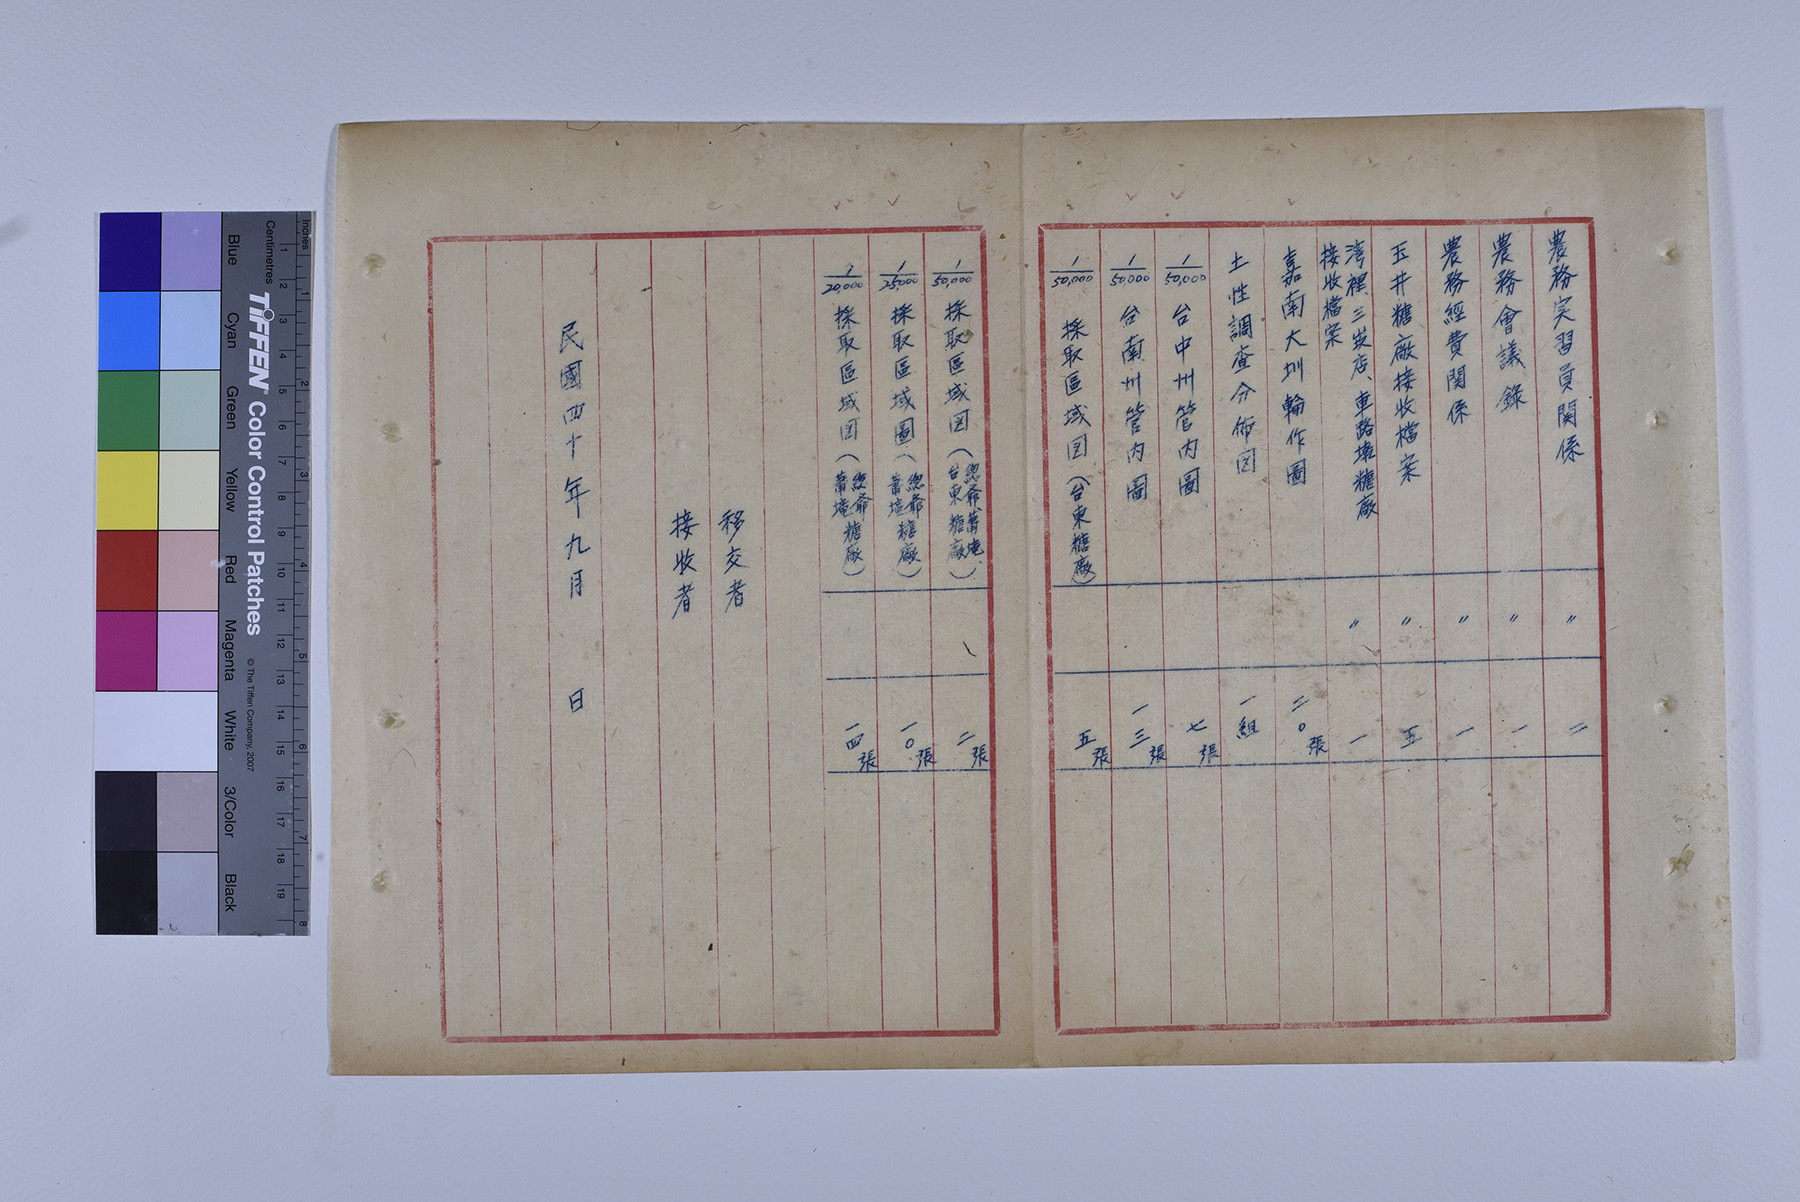 農務实習員関係 〃 二
農務會議錄 〃 一
農務經費関係 〃 一
玉井糖廠接收檔案 〃 五
灣裡、三崁店、車路墘糖廠
接收檔案 〃 一
嘉南大圳輪作圖 二〇張
土性調查分佈図 一組
1/50,000 台中州管内圖 七張
1/50,000 台南州管内圖 一三張
1/50,000 採取區域図(台東糖廠) 五張
1/50,000 採取區域図(總爺、蕭壠、台東糖廠) 二張
1/25,000 採取區域圖(總爺 蕭壠糖廠) 一〇張
1/20,000 採取區域図(總爺 蕭壠糖廠) 一四張
移交者
接收者
民國四十年九月 日
Inches
Centimetres
TIFFEN® Color Control Patches
© The Tiffen Company, 2007
Blue Cyan Green Yellow Red Magenta White 3/Color Black
1 2 3 4 5 6 7 8
1 2 3 4 5 6 7 8 9 10 11 12 13 14 15 16 17 18 19